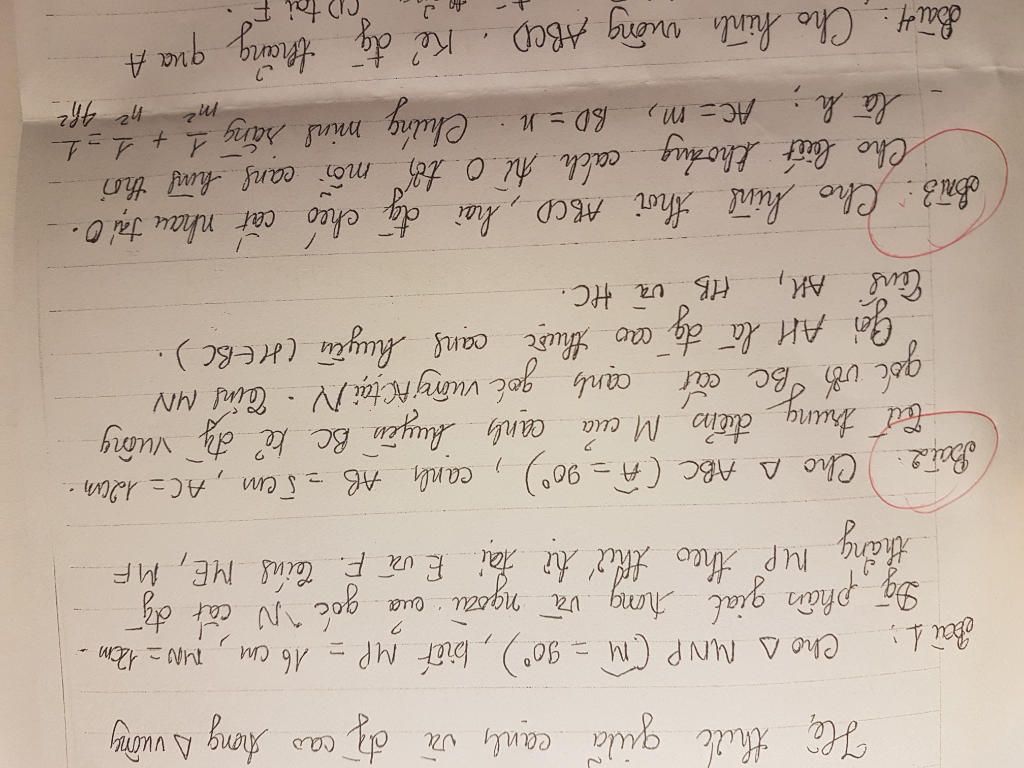 Hệ thức giữa cạnh và đg cao trong Δ vuông
Bài 1: Cho Δ MNP (M̂ = 90°), biết MP = 16 cm, MN = 12cm.
Đg phân giác trong và ngoài của góc N cắt đg
thẳng MP theo thứ tự tại E và F. Tính ME, MF
Bài 2: Cho Δ ABC (Â = 90°), cạnh AB = 5 cm, AC = 12cm.
Từ trung điểm M của cạnh huyền BC kẻ đg vuông
góc với BC cắt cạnh góc vuông AC tại N. Tính MN
Gọi AH là đg cao thuộc cạnh huyền (H∈BC).
Tính AH, HB và HC.
Bài 3: Cho hình thoi ABCD, hai đg chéo cắt nhau tại O.
Cho biết khoảng cách từ O tới mỗi cạnh hình thoi
là h; AC = m, BD = n. Chứng minh rằng 1/m² + 1/n² = 1/4h²
Bài 4: Cho hình vuông ABCD. Kẻ đg thẳng qua A
CD tại F.